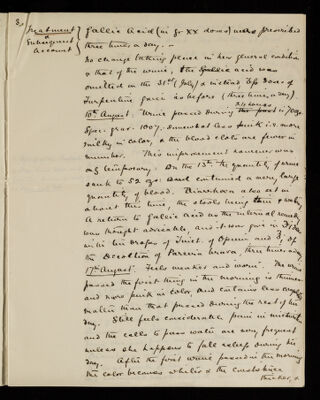 8.
Treatment & Subsequent Account
Gallic Acid (in gr XX doses) were prescribed
three times a day. -
No change taking place in her general condition
& that of the urine, the Gallic acid was
omitted on the 31st (July) & instead doses of
Turpentine given as before (three times a day)
10th August. Urine passed during 24 hours is 70 oz.
Spec. grav. 1007. Somewhat less pink i.e. more
milky in color, & the blood clots are fewer in
number. This improvement however was
only temporary. On the 13th the quantity of urine
sank to 52 ozs. and contained a very large
quantity of blood. Diarrhoea also set in
about this time, the stools being thin & watery
A return to Gallic Acid as the internal remedy
was thought advisable, and it was given in
with ten drops of Tinct. of Opium and of
the Decoction of Pareira brava, three times a day.
17th August. Feels weaker and worse. The urine
passed the first thing in the morning is thinner
and more pink in color, and contains less
matter than that passed during the rest of the
day. Still feels considerable pain in micturition
and the calls to pass water are very frequent
unless she happens to fall asleep during the
day. After the first urine passed in the morning
the color becomes whiter & the
thicker, &